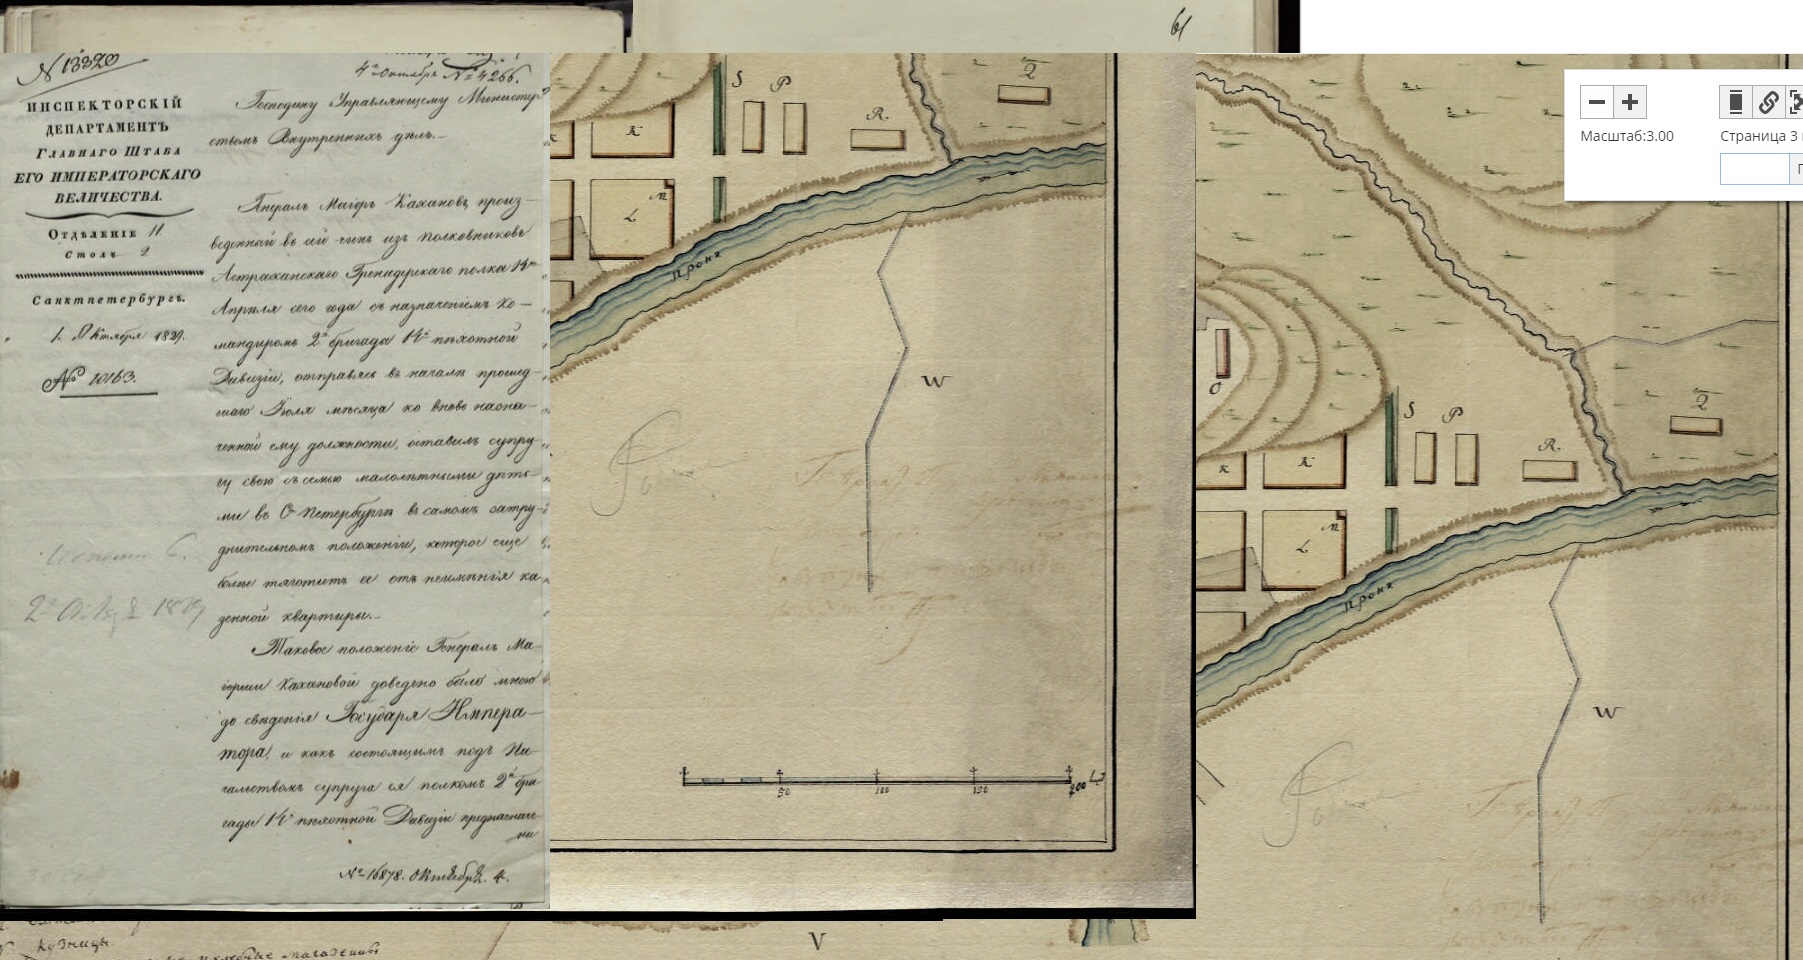 61
№ 13320
4го Октября № 4266.
ИНСПЕКТОРСКІЙ
ДЕПАРТАМЕНТЪ
ГЛАВНАГО ШТАБА
ЕГО ИМПЕРАТОРСКАГО
ВЕЛИЧЕСТВА.
Отдѣленіе II
Столъ 2
Санктпетербургъ.
1. Октября 1829.
№ 10163.
Господину Управляющему Министер
ствомъ Внутреннихъ дѣлъ.
Генералъ Маіоръ Кахановъ, произ-
веденный въ сей чинъ изъ полковниковъ
Астраханскаго Гренадерскаго полка 14го
Апрѣля сего года съ назначеніемъ Ко-
мандиромъ 2й бригады 14й пѣхотной
Дивизіи, отправясь въ началѣ прошед-
шаго Іюля мѣсяца ко вновь назна-
ченной ему должности, оставилъ супру-
гу свою съ семью малолѣтными дѣть-
ми въ С. Петербургѣ въ самомъ затру-
днительномъ положеніи, которое еще
болѣе тяготитъ ее отъ неимѣнія ка-
зенной квартиры.
Таковое положеніе Генералъ Ма-
іорши Кахановой доведено было мною
до свѣденія Государя Импера-
тора, и какъ состоящимъ подъ На-
чальствомъ супруга ея полкомъ 2й бри
гады 14й пѣхотной Дивизіи предназначе
но
№ 16878. Октября 4.
S P
Q
R.
K
L M
Проня
W
50 100 150 200
O
S P
Q
R.
K K
L M
Проня
W
Масштаб:3.00
Страница 3
кузницы
V